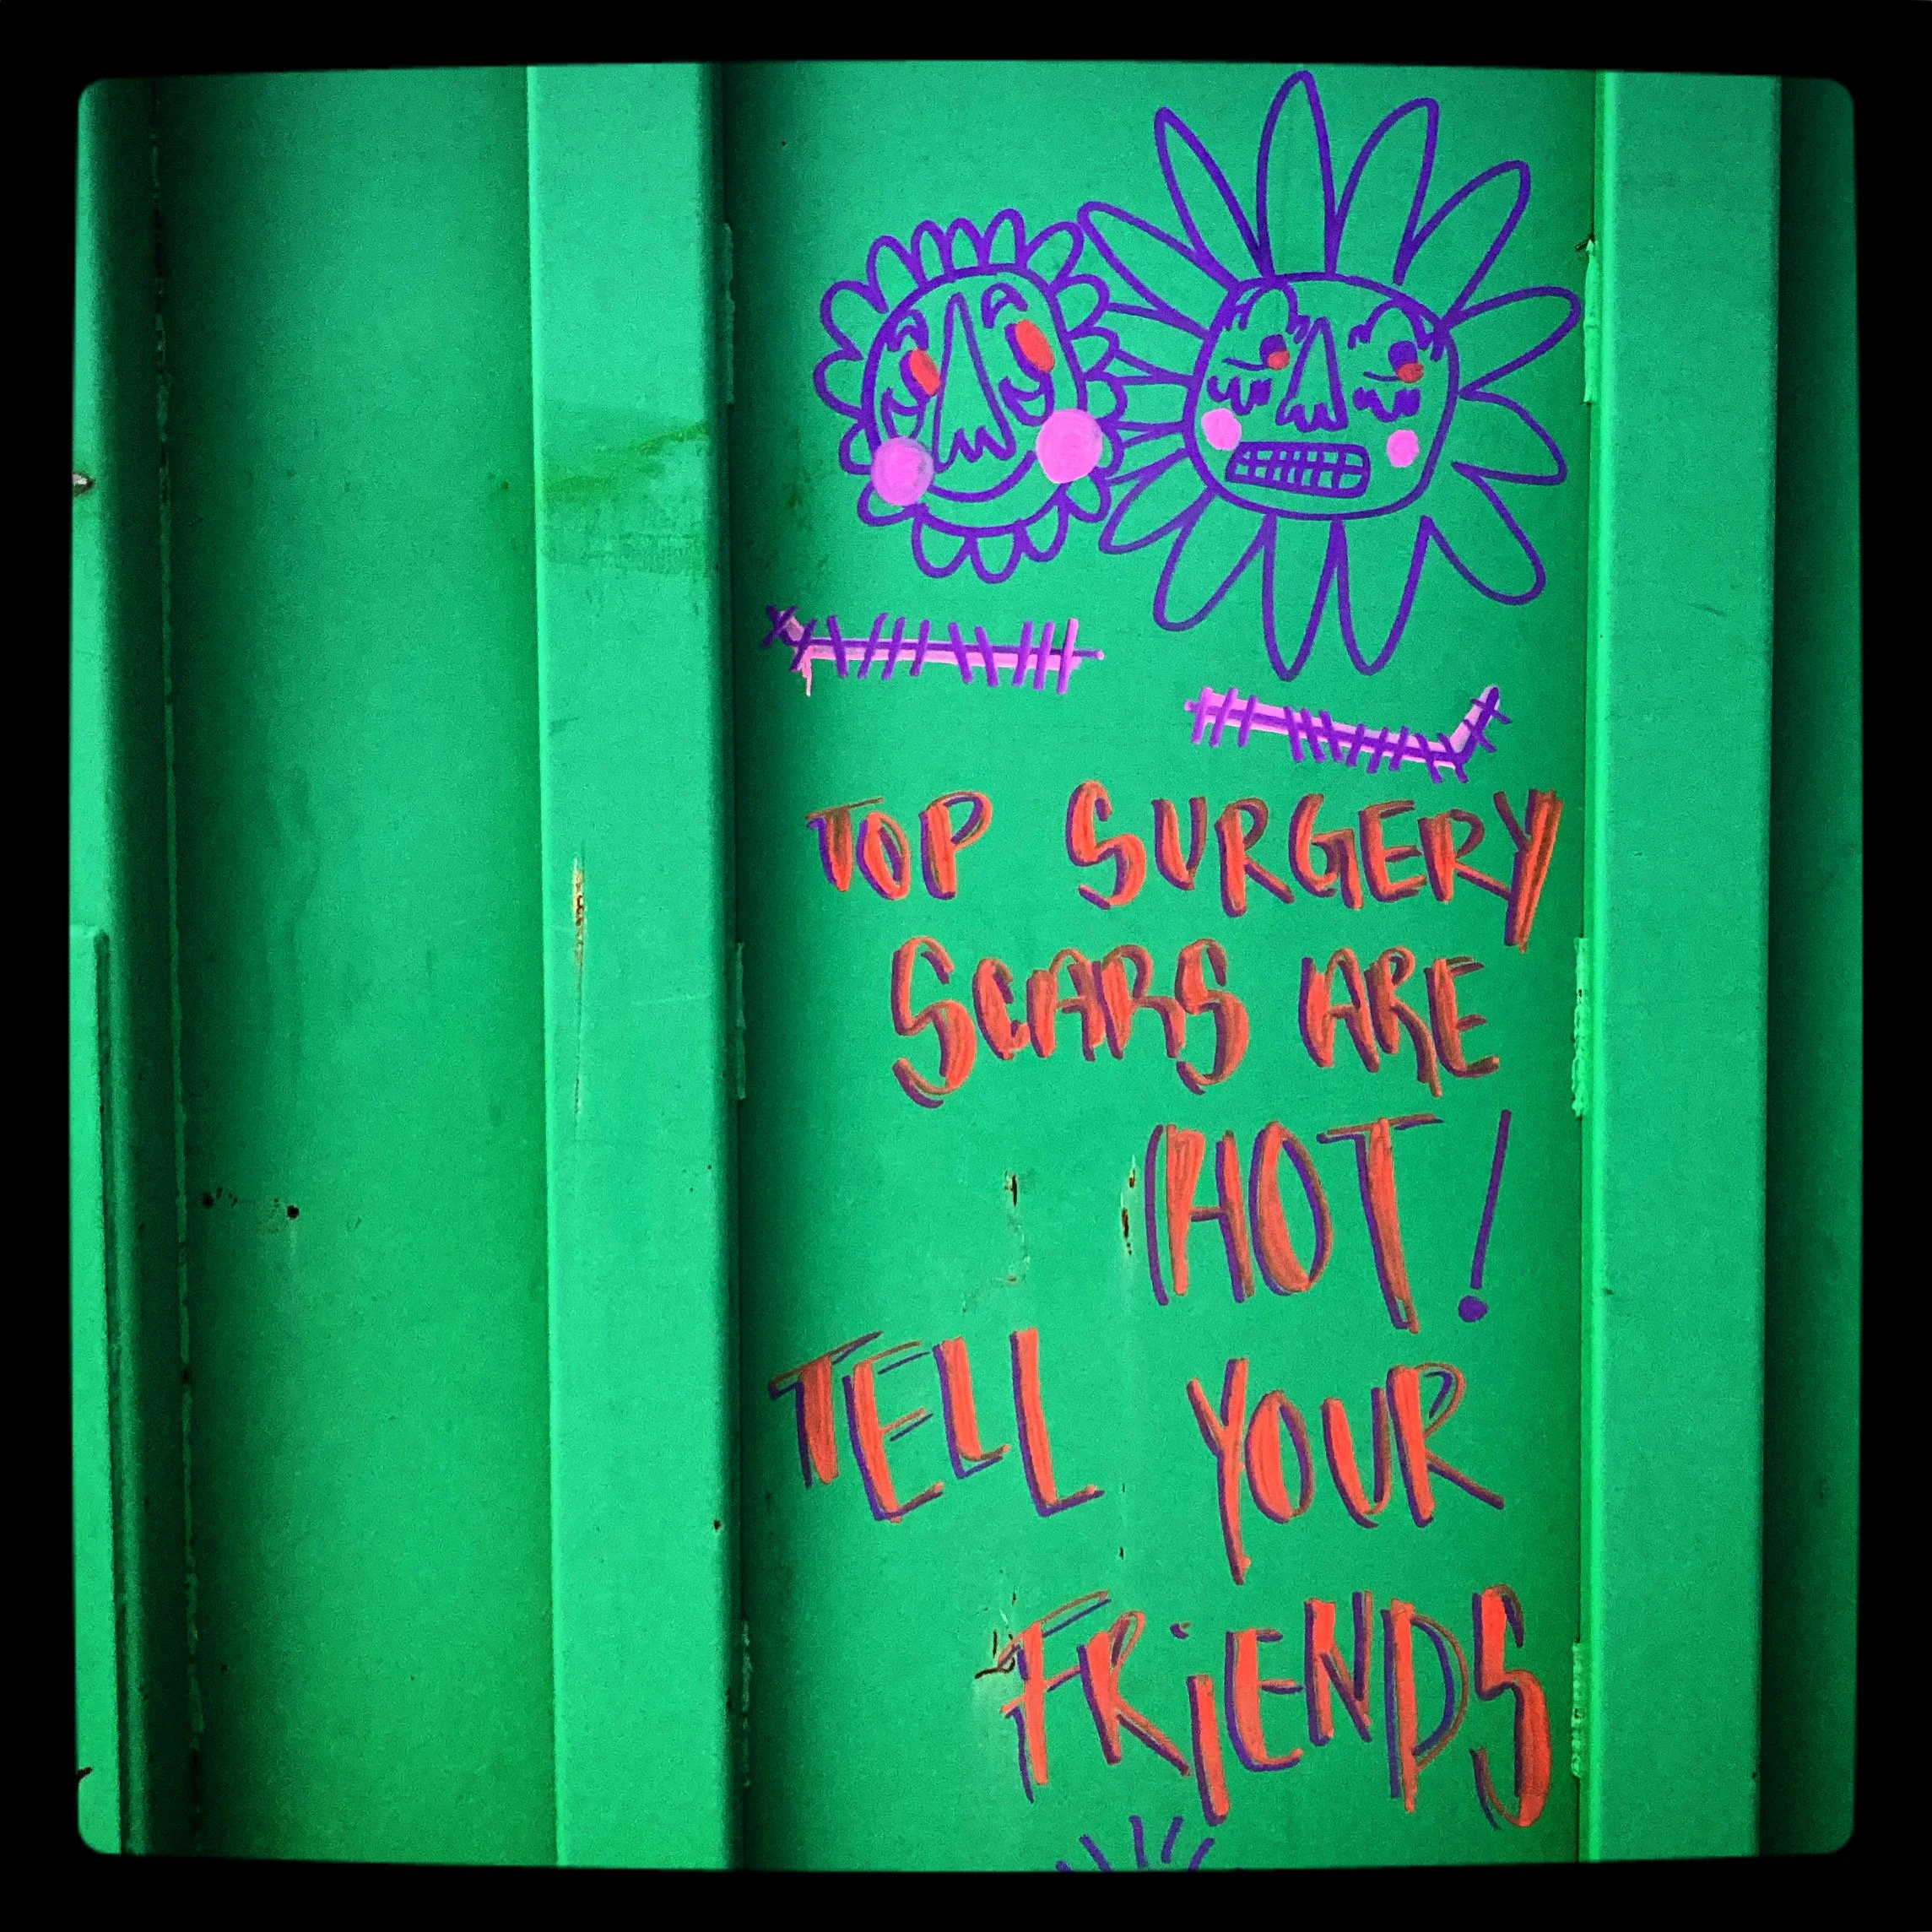 TOP SURGERY
SCARS ARE
HOT!
TELL YOUR
FRiENDS